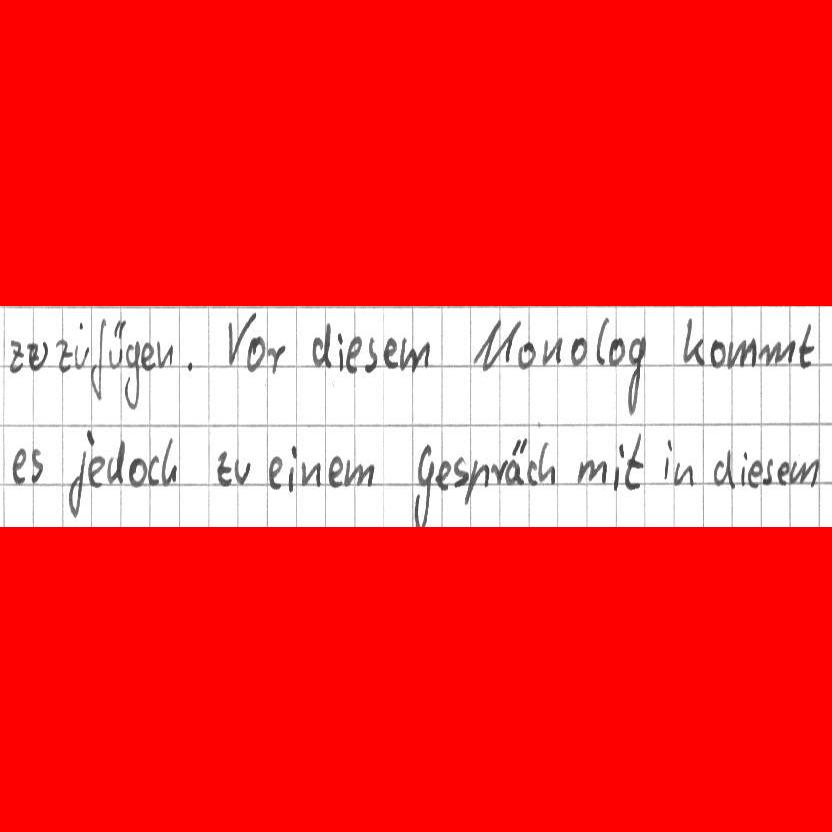 zuzufügen. Vor diesem Monolog kommt
es jedoch zu einem Gespräch mit in diesem